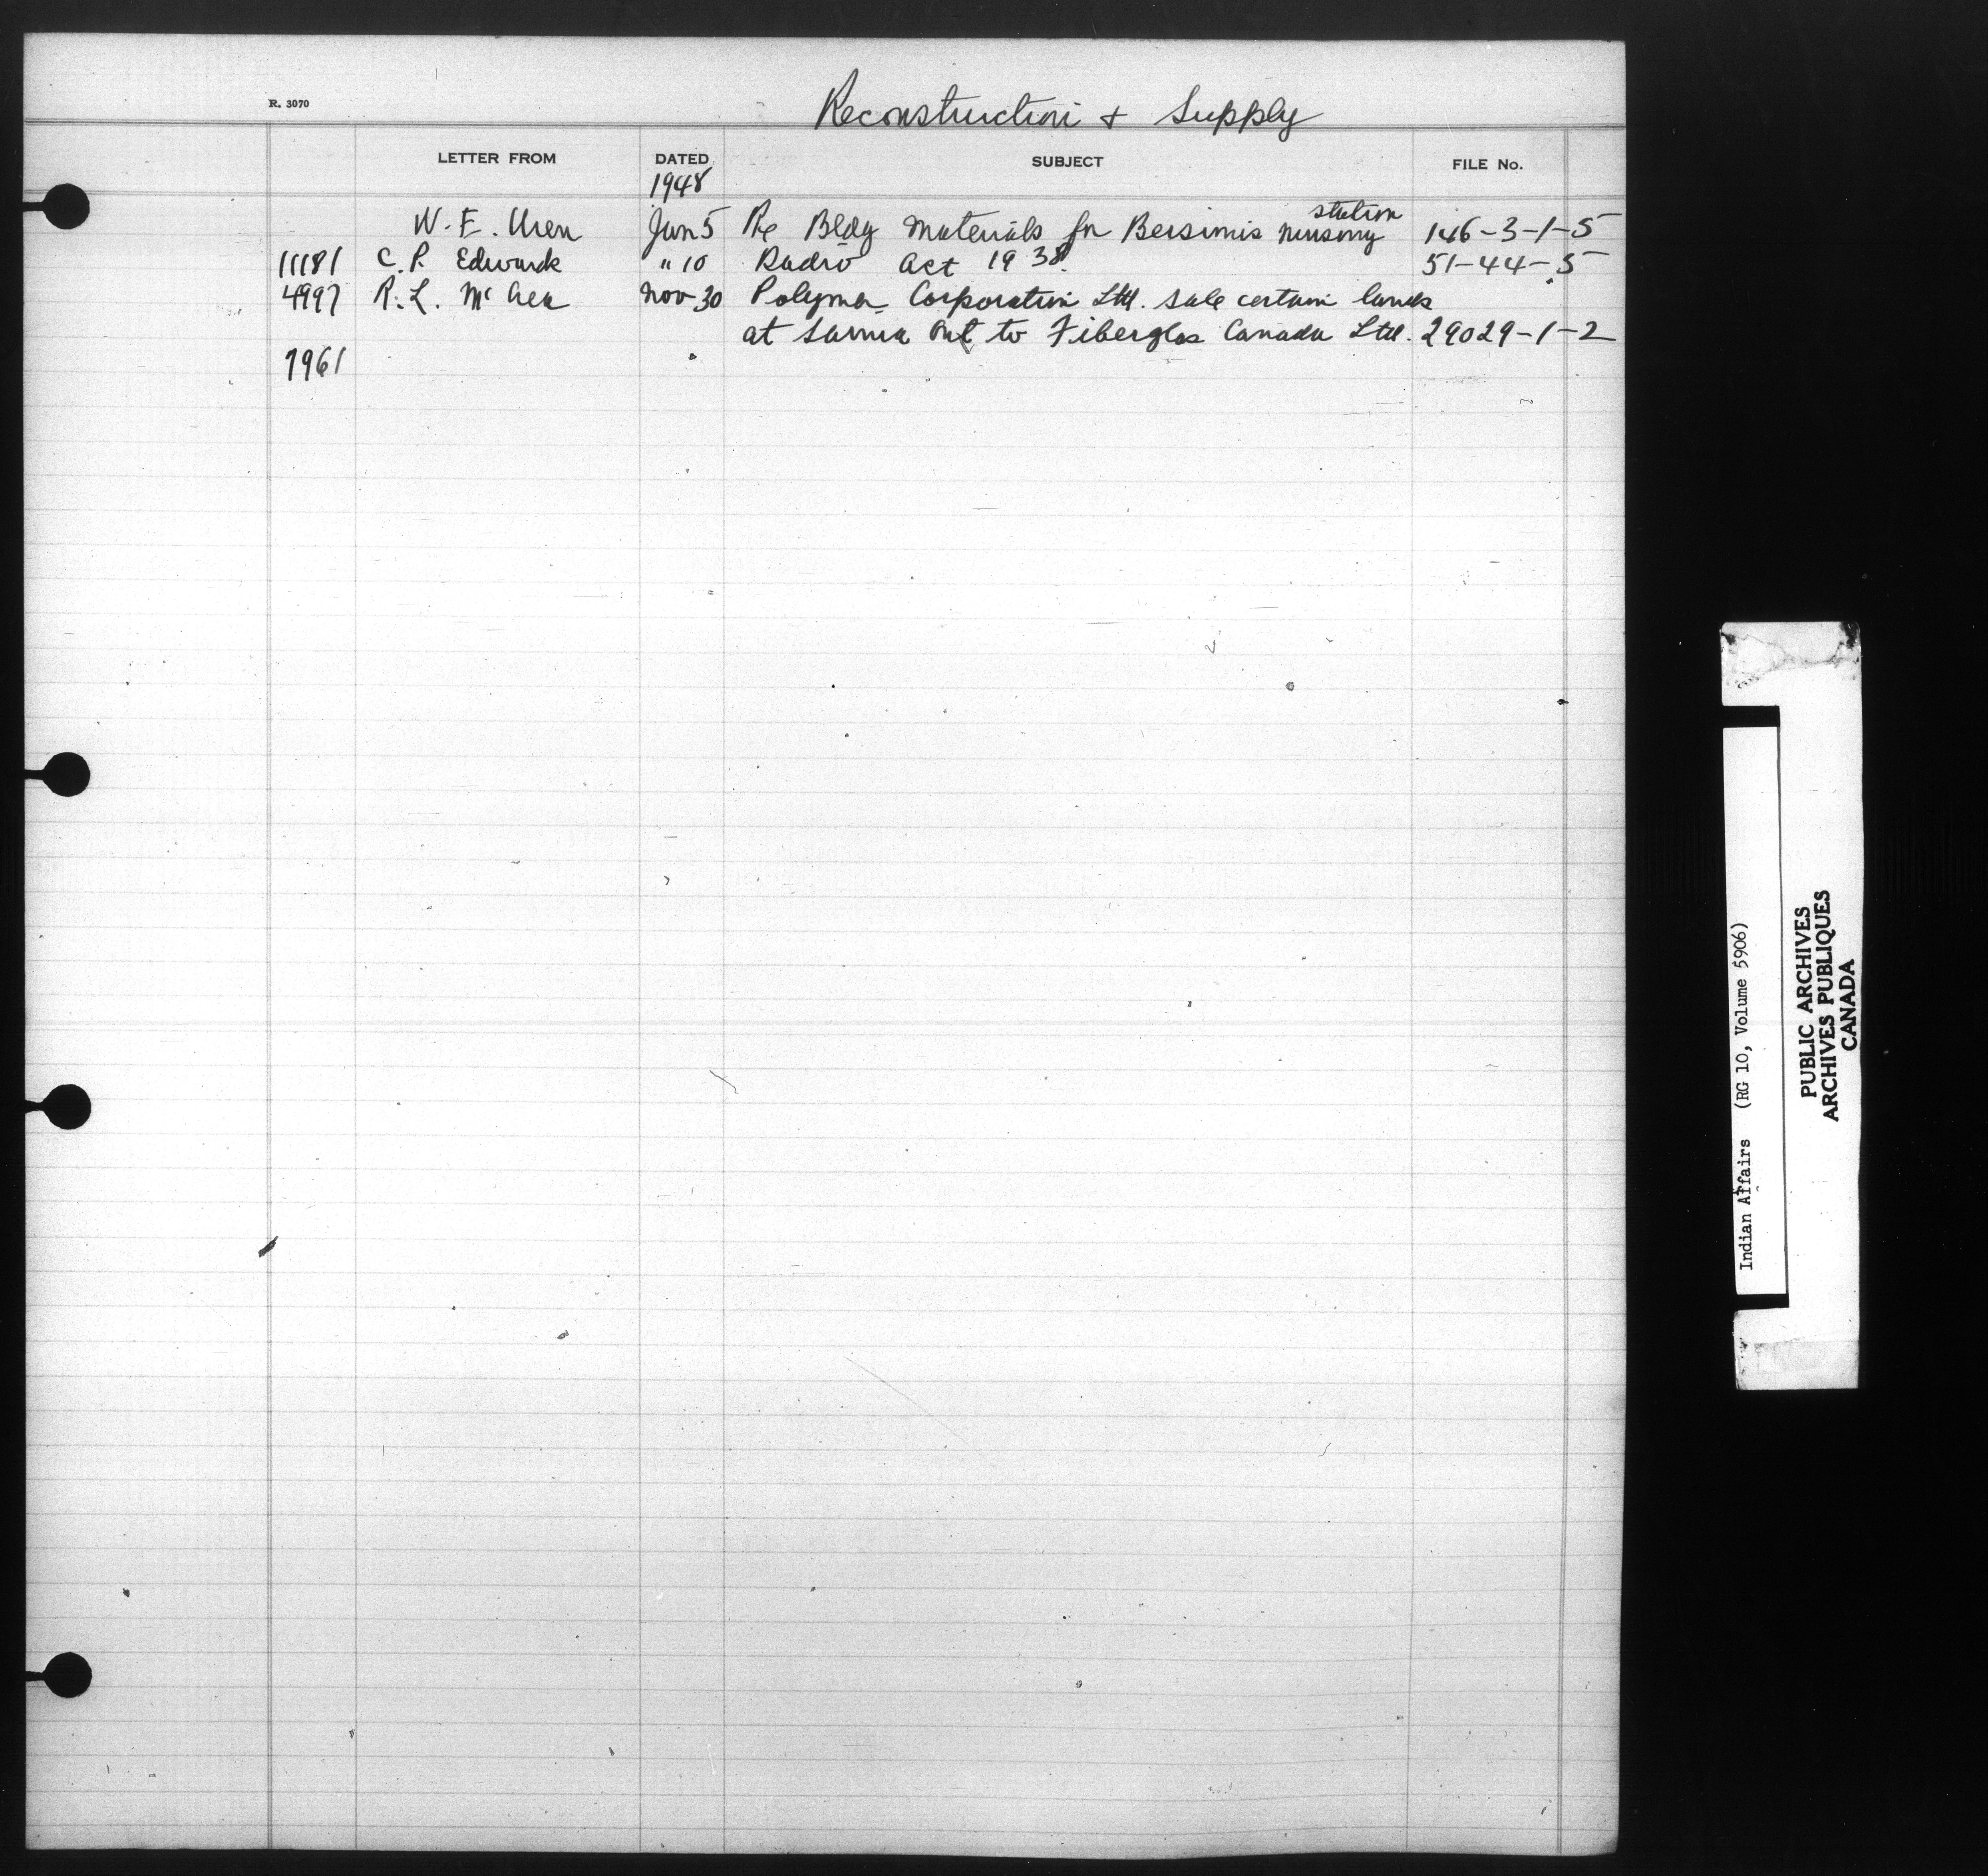 R. 3070
Reconstruction & Supply
LETTER FROM DATED SUBJECT FILE No.
1948
station
W. E. Uren Jan 5 Re Bldg Materials for Bersimis nursing 146-3-1-5
11181 C. P. Edwards " 10 Radio Act 1938. 51-44-5
4997 R. L. Polymer Corporation Ltd. sale certain lands
at Sarnia Ont to Fiberglas Canada Ltd. 29029-1-2
7961
Indian Affairs (RG 10, Volume 5906)
PUBLIC ARCHIVES
ARCHIVES PUBLIQUES
CANADA